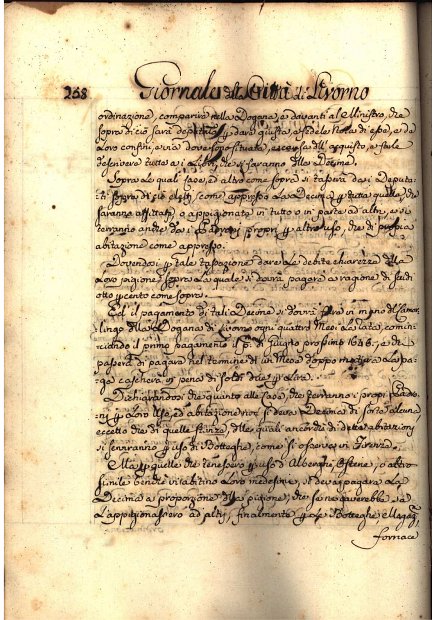 258 Giornale della Città di Livorno
ordinazione, comparire nella Dogana, e davanti al Ministro, che
sopra di ciò sarà deputato, e dare giusta, e fedele Nota di esse, e da
loro confini, e via dove poste situate, e come dell' acquisto, e farle
descrivere tutte a i Libri, che si faranno delle Decime.
Sopra le quali case, ed altro come sopra si tasserà da i Deputa-
ti sopra di ciò eletti, come appresso La Decima per tutte quelle, che
saranno affittate, o appigionate in tutto o in parte ad altri, e si
terranno anche da i Padroni proprj per altro uso, che di propria
abitazione come appresso.
Dovendosi per tale tassazione dare le debite chiarezze della
loro pigione, sopra la quale si dovrà pagare a ragione di scudi
otto per cento come sopra.
Ed il pagamento di tali Decime si dovrà fare in mano del Camar-
lingo della Dogana di Livorno ogni quattro Mesi la rata, comin-
ciando il primo pagamento il p.° di Giugno prossimo 1646, e chi
passerà di pagare nel termine di un Mese doppo maturata la pa-
ga cascherà in pena di soldi due per lira.
Dichiarandosi che quanto alle Case, che terranno i proprj Padro-
ni per loro uso, ed abitazione non si deva Decima di sorta alcuna
eccetto che di quelle stanze, delle quali ancorchè di dette abitazioni
si serviranno per uso di Botteghe, come si osserva in Firenze.
Ma per quelle che tenessero per uso di Alberghi, Osterie, o altro
simile benchè vi abitino loro medesimi, si deva pagare la
Decima a proporzione della pigione, che se ne caverebbe se
l'appigionassero ad altri, finalmente per le Botteghe, Magaz.
fornace